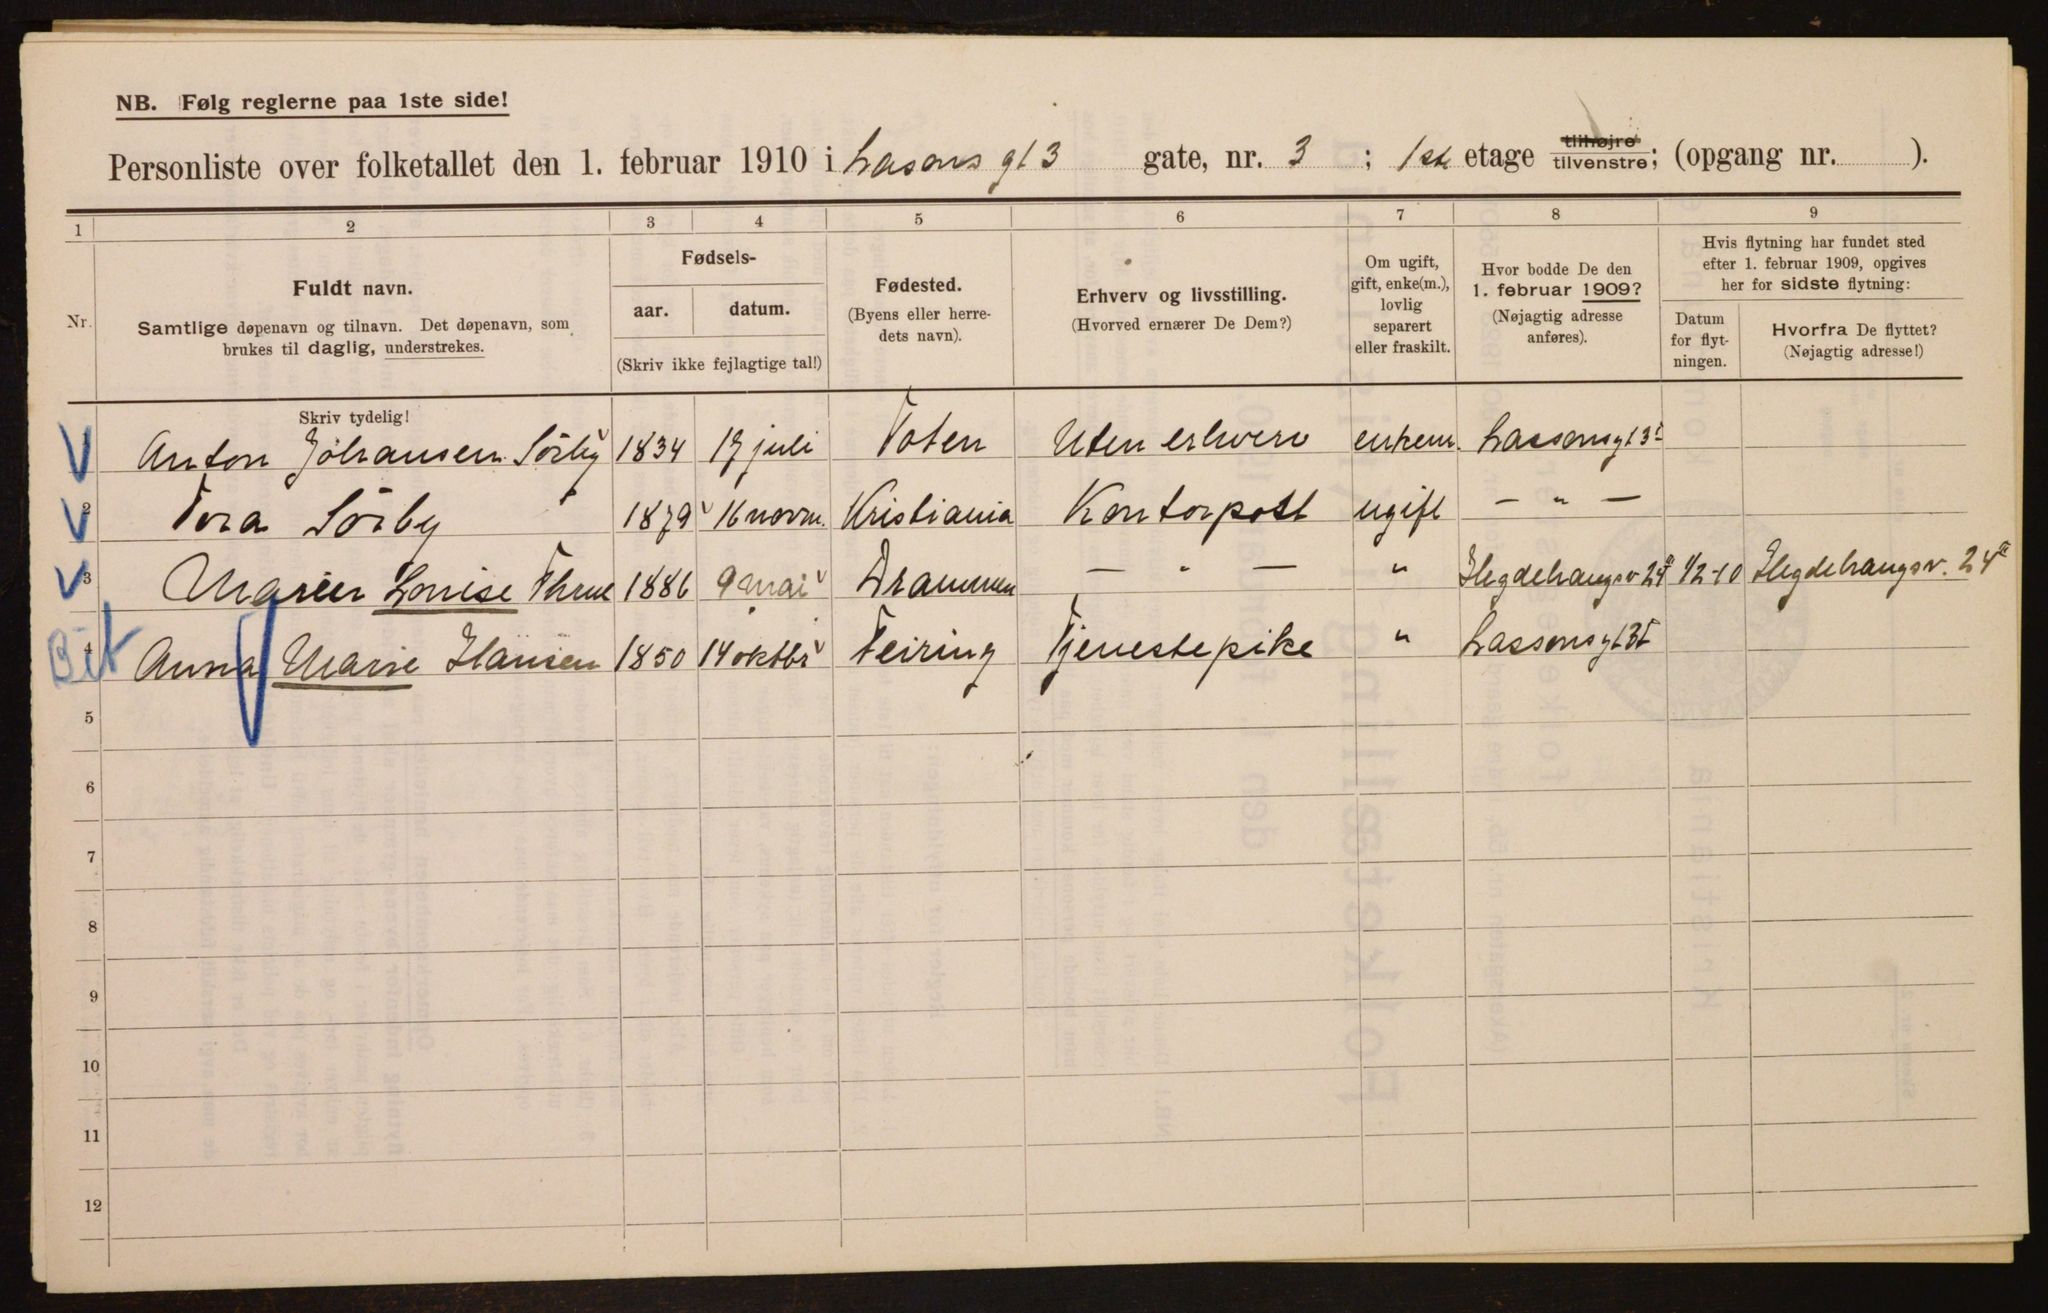 NB. Følg reglerne paa 1ste side!
Personliste over folketallet den 1. februar 1910 i Lasons gt 3 gate, nr. 3 ; 1ste etage tilhøjre tilvenstre; (opgang nr. ).
1 2 3 4 5 6 7 8 9
Nr.
Fuldt navn.
Samtlige døpenavn og tilnavn. Det døpenavn, som
brukes til daglig, understrekes.
Fødsels-
aar. datum.
(Skriv ikke fejlagtige tal!)
Fødested.
(Byens eller herre-
dets navn).
Erhverv og livsstilling.
(Hvorved ernærer De Dem?)
Om ugift,
gift, enke(m.),
lovlig
separert
eller fraskilt.
Hvor bodde De den
1. februar 1909?
(Nøjagtig adresse
anføres).
Hvis flytning har fundet sted
efter 1. februar 1909, opgives
her for sidste flytning:
Datum
for flyt-
ningen.
Hvorfra De flyttet?
(Nøjagtig adresse!)
Skriv tydelig!
V Anton Johansen Sörby 1834 17 juli Toten Uten erhverv enkem. Lassonsgt 3 I
V 2 Tora Sörby 1879 16 novm. Kristiania Kontorpost ugift — " —
V 3 Louise Thrue 1886 9 mai Drammen — " — " Hegdehaugsv 24 1/2-10 Hegdehaugsv. 24
4 Anna Marie Hansen 1850 14 oktbr Feiring Tjenestepike " Lassonsgt 3 I
5
6
7
8
9
10
11
12